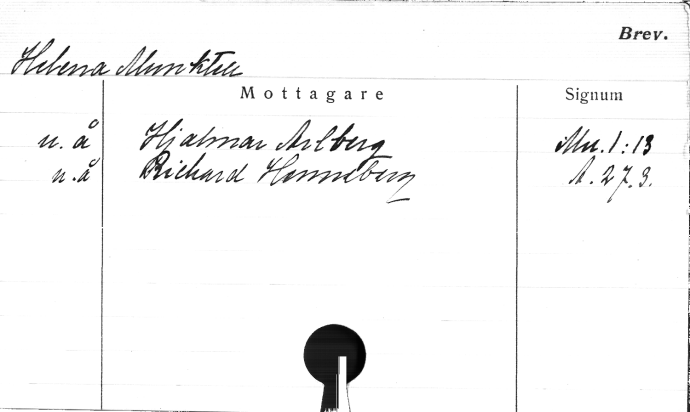 Brev.
Helena Munktell
Mottagare Signum
u. å Hjalmar Arlberg Mu. 1:13
u. å Richard Henneberg A. 27.3.